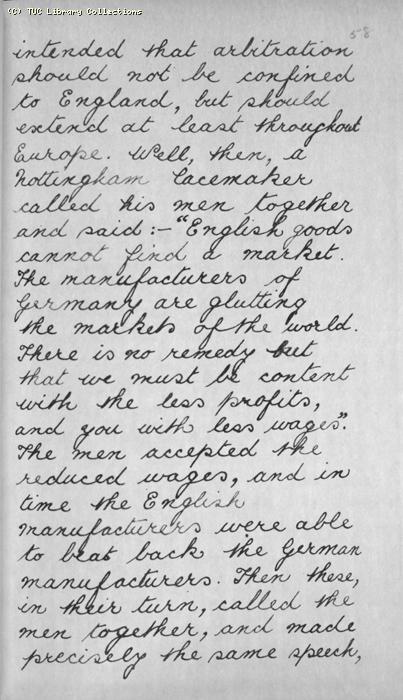 (C) TUC Library Collections
58
intended that arbitration
should not be confined
to England, but should
extend at least throughout
Europe. Well, then, a
Nottingham lacemaker
called his men together
and said :- "English goods
cannot find a market.
The manufacturers of
Germany are glutting
the markets of the world.
There is no remedy but
that we must be content
with the less profits,
and you with less wages".
The men accepted the
reduced wages, and in
time the English
manufacturers were able
to beat back the German
manufacturers. Then these,
in their turn, called the
men together, and made
precisely the same speech,